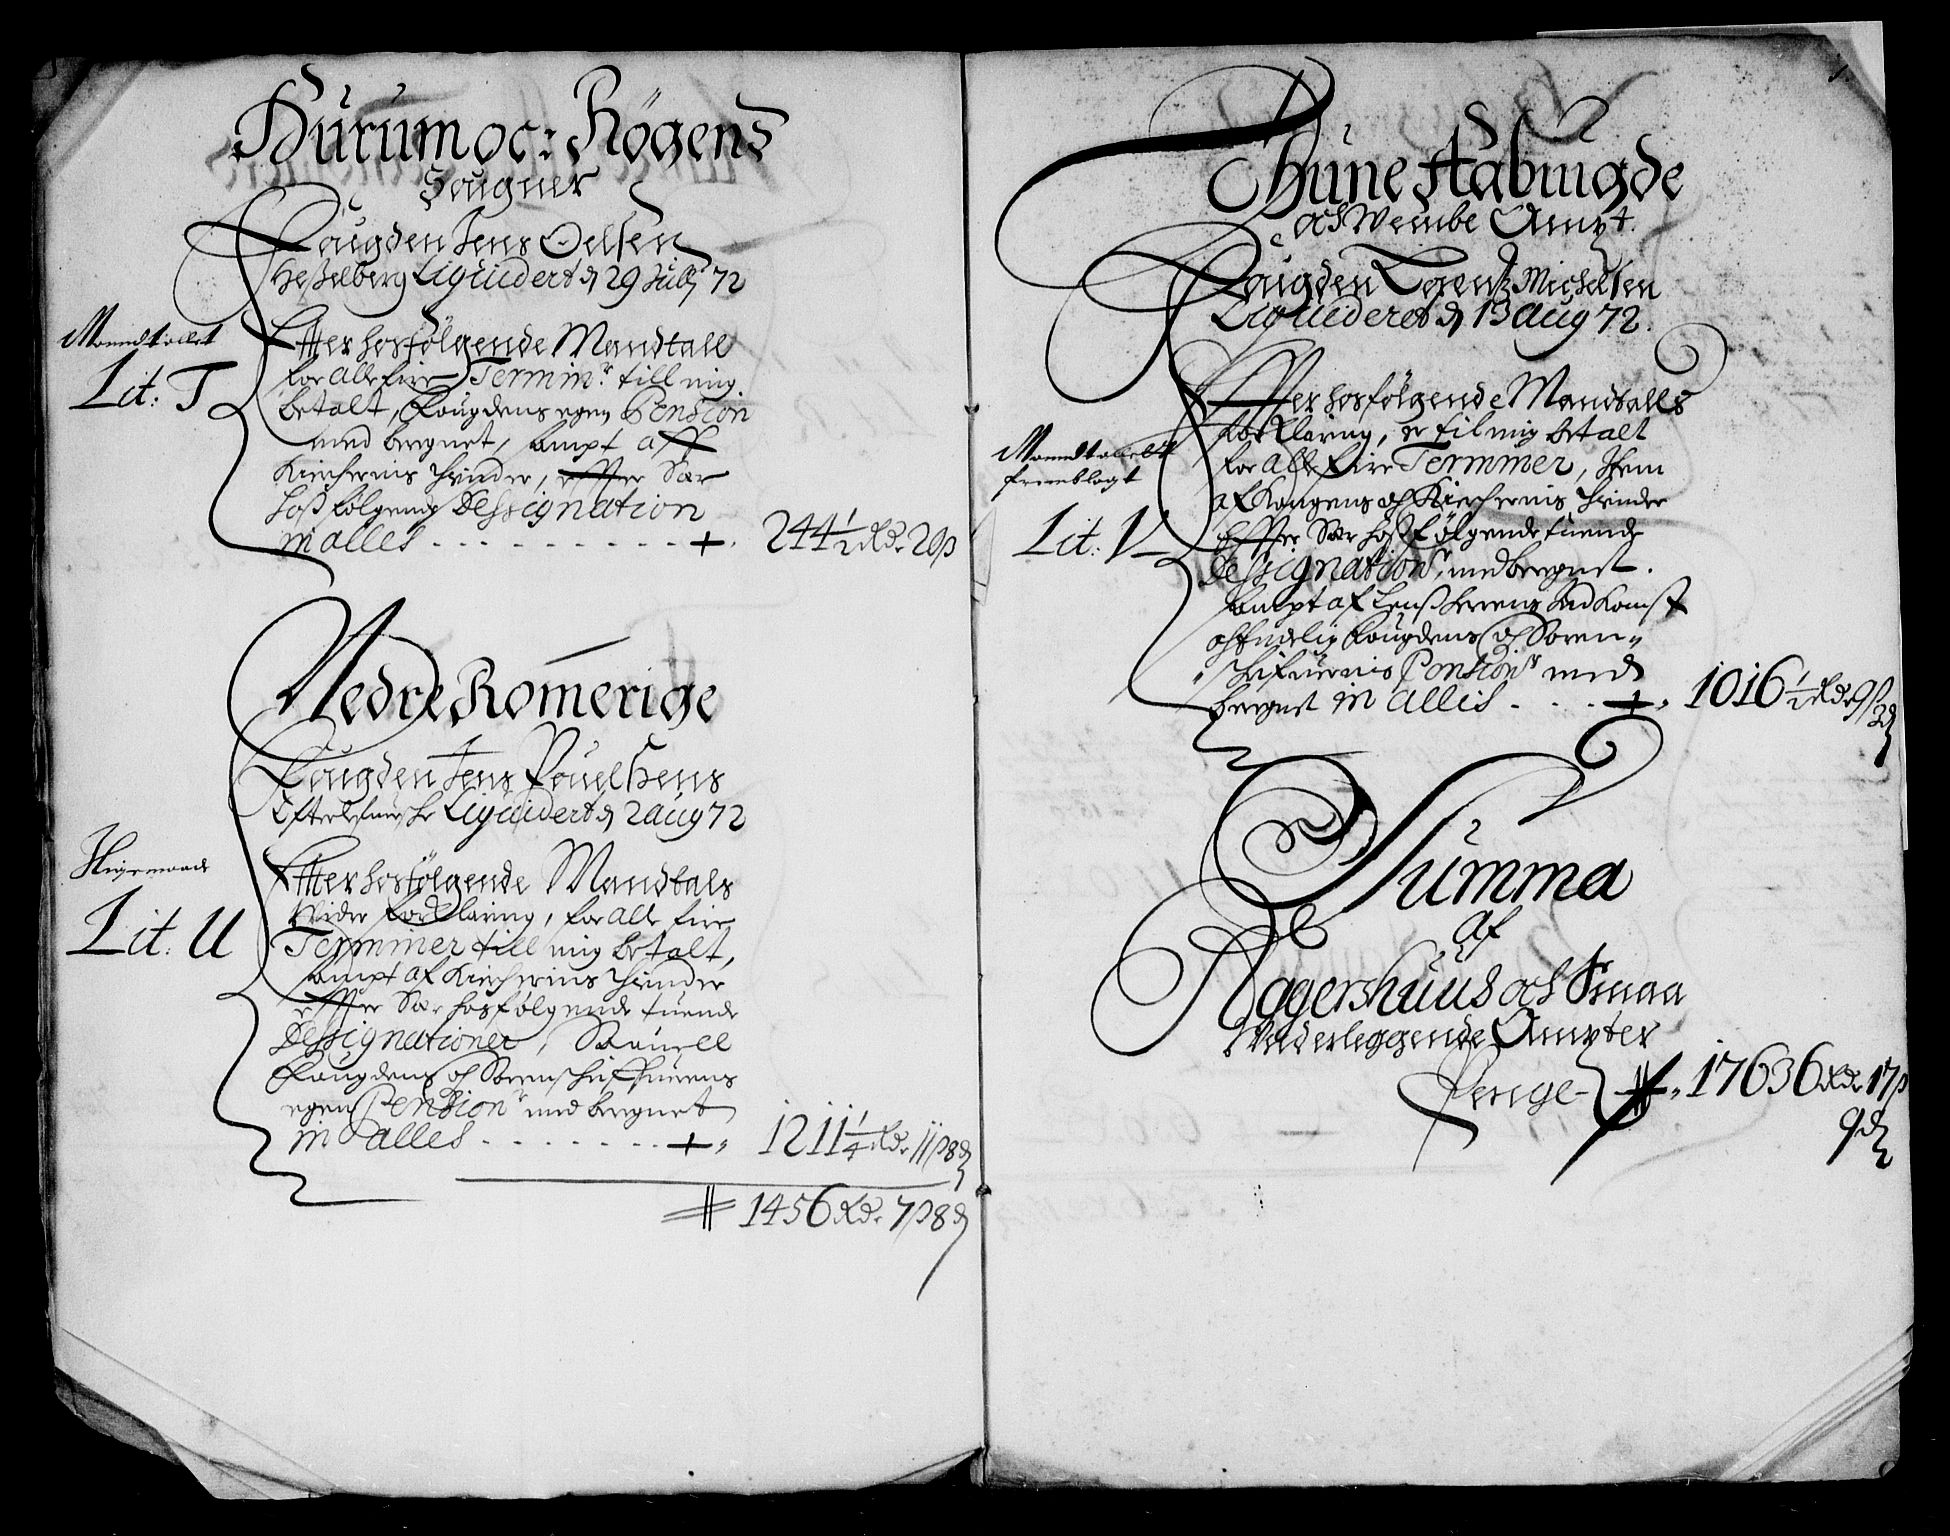 Hurum oc: Røgens
Sougner
Fougden Jens Oelsen
Hesselberg Liquidert d 29 Julij 72
Mandtallet
Lit: T
Effter hosfølgende Mandtall
for alle fire Termin.r till mig
betalt, Fougdens egen Pension
med beregnet, sampt aff
Kirchernis Tiender, effter Sær
hosfølgende Dessignation
in alles - - - - - - - - - + . 244 1/2 Rdr 20 ß
Nedre Romerige
Fougden Jens Pouelsens
Efterlefuersche Liquidert d 2 aug 72
Lit: U
Effter hosfølgende Mandtals
Wider forklaring, for alle fire
Terminer till mig betalt,
sampt af Kircherins Tiender
effter Sær hosfølgende tuende
Dessignationer, Saauell
Fougdens och Sorenschriffuerens
egen Pension.r med beregnet
in alles - - - - - - - + , 1211 1/4 Rdr 11 ß 8 d
1456 Rdr 7 ß 8 d
Thune Stabuigde
och Wembe Ampt.
Fougden Lorentz Michelsen
Liquideret d 13 aug 72.
Lit: V
Effter hosfølgende Mandtalls
forklaring, er til mig betalt
for alle fire Terminer, Item
af Kongens och Kirchernis Tiender
Effter Sær hosfølgende tuende
Dessignation.r, med beregnet.
sampt af Lensherrens indkomst
och endelig Fougdens och Soren-
schrifuernis Pension.r med
beregnet in alles - - - - + , 1016 1/2 Rdr 9 ß
3 d
Summa
af
Aggershuus och Smaa
Vnderleggende Ampter
Penge - 17636 Rdr 17 ß
9 d